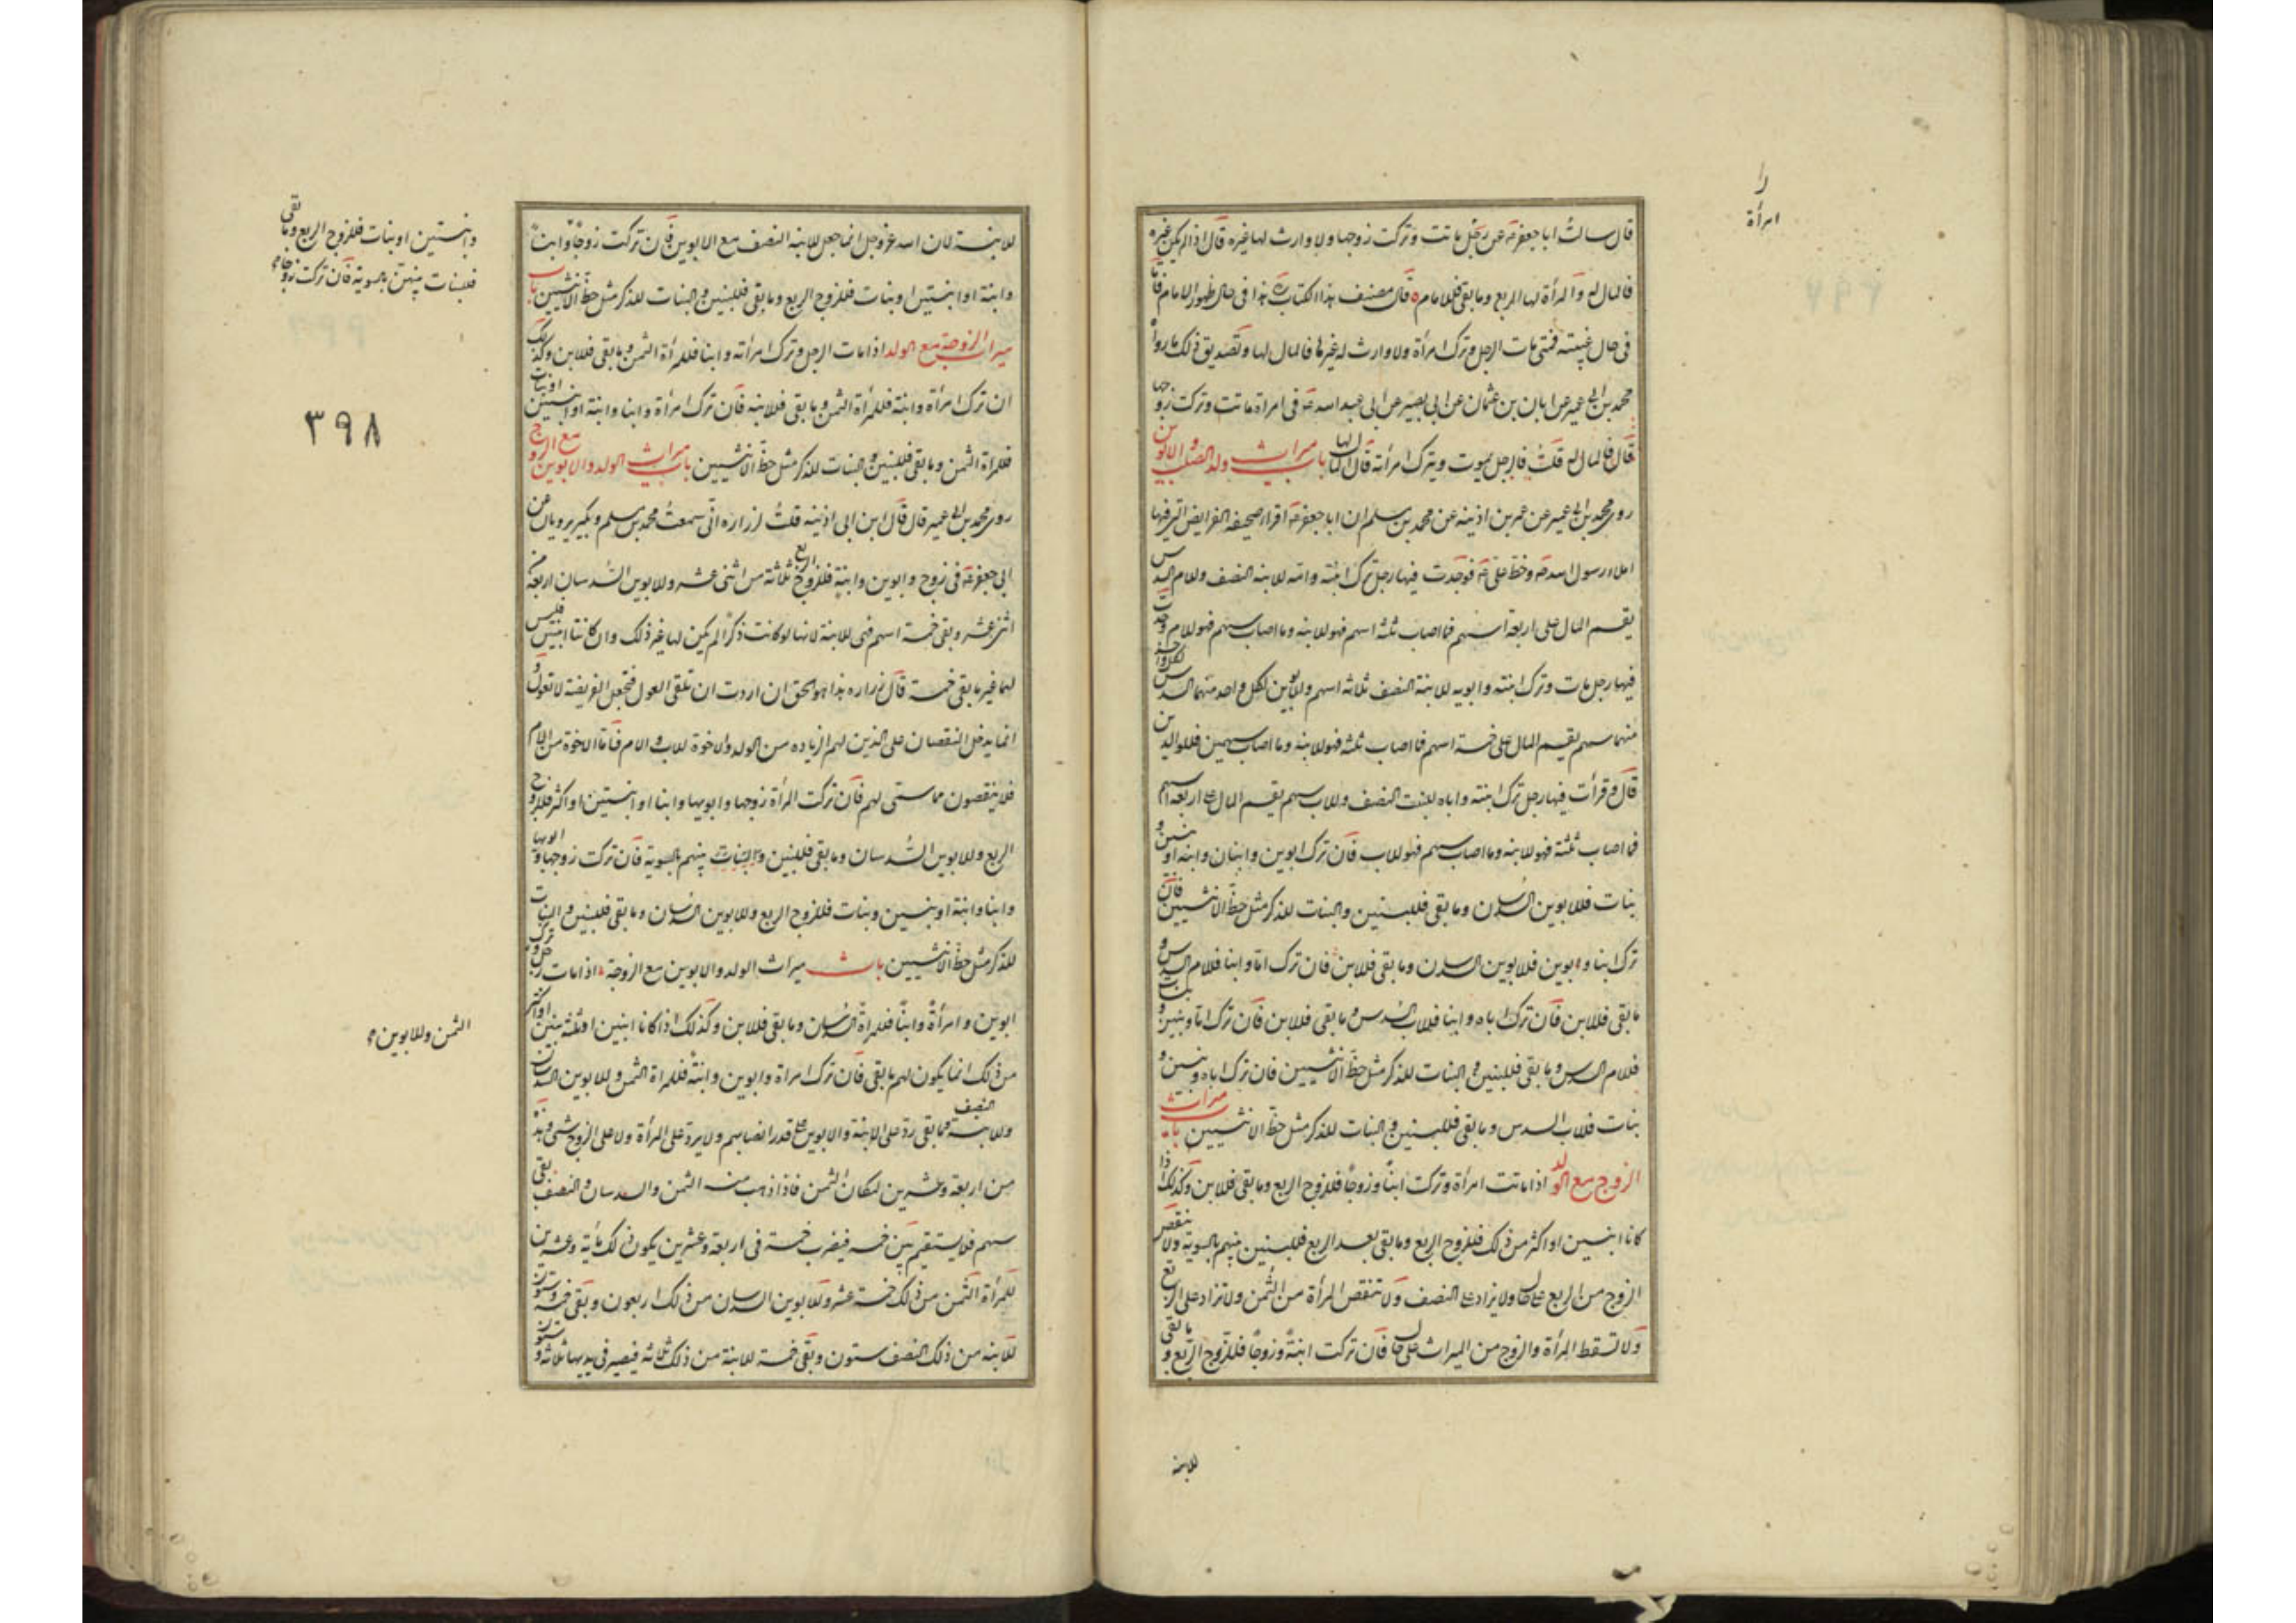 را
امرأة
قال سالت ابا جعفر عن رجل ماتت وتركت زوجها ولا وارث لها غيره قال اذا لم يكن غيره
فالمال له والمرأة لها الربع وما بقى فللامام قال مصنف هذا الكتاب هذا فى حال ظهور الامام فاما
فى حال غيبته فمتى مات الرجل وترك امرأة ولا وارث له غيرها فالمال لها وتصديق ذلك ما رواه
محمد بن ابى عمير عن ابان بن عثمان عن ابى بصير عن ابى عبد اسه فى امراة ماتت وتركت زوجها
قال فالمال له قلت فالرجل يموت ويترك امرأته قال المال لها باب ميراث ولد الصلب والابوين
روى محمد بن ابى عمير عن عمر بن اذينه عن محمد بن مسلم ان ابا جعفر اقراه صحيفة الفرايض التى فيها
املاء رسول اسه وخط على فوجدت فيها رجل ترك ابنته وامه للابنه النصف وللام السدس
يقسم المال على اربعة اسهم فما اصاب ثلثه اسهم فهو للابنه وما اصاب سهم فهو للام ووجدت
فيها رجل مات وترك ابنته وابويه للابنة النصف ثلاثه اسهم وللابوين لكل واحد منهما السدس لكل واحد
منهما سهم يقسم المال على خمسة اسهم فما اصاب ثلثه فهو للابنه وما اصاب سهمين فللوالدين
قال وقرأت فيها رجل ترك ابنته واباه للبنت النصف وللاب سهم يقسم المال على اربعه اسهم
فما اصاب ثلثة فهو للابنه وما اصاب سهم فهو للاب فان ترك ابوين وابنان وابنه او بنين و
بنات فللابوين السدسان وما بقى فللبنين والبنات للذكر مثل حظ الانثيين فان
ترك ابنا وابوين فللابوين السدسان وما بقى فللابن فان ترك اما وابنا فللام السدس و
ما بقى فللابن فان ترك اباه وابنا فللاب السدس وما بقى فللابن فان ترك اما وبنين وبنات
فللام السدس وما بقى فللبنين والبنات للذكر مثل حظ الانثيين فان ترك اباه وبنين و
بنات فللاب السدس وما بقى فللبنين والبنات للذكر مثل حظ الانثيين باب ميراث
الزوج مع الولد اذا ماتت امرأة وتركت ابناً وزوجاً فللزوج الربع وما بقى فللابن وكذلك اذا
كانا ابنين او اكثر من ذلك فللزوج الربع وما بقى بعد الربع فللبنين بينهم بالسوية ولا ينقص
الزوج من الربع على حال ولا يزاد على النصف ولا تنقص المرأة من الثمن ولا تزاد على الربع
ولا تسقط المرأة والزوج من الميراث على حال فان تركت ابنةً وزوجاً فللزوج الربع وما بقى
للابنه
للابنة لان اسه عز وجل انما جعل للابنه النصف مع الابوين فان تركت زوجاً وابناً
وابنة او ابنتين او بنات فللزوج الربع وما بقى فللبنين والبنات للذكر مثل حظ الانثيين باب
ميراث الزوجة مع الولد اذا مات الرجل وترك امرأته وابنا فللمرأة الثمن وما بقى فللابن وكذلك
ان ترك امرأة وابنة فللمرأة الثمن وما بقى فللابنه فان ترك امرأة وابنا وابنة او ابنتين او بنات
فلمراة الثمن وما بقى فللبنين والبنات للذكر مثل حظ الانثيين باب ميراث الولد والابوين مع الزوج
روى محمد بن ابى عمير قال قال ابن ابى اذينه قلت لزراره انى سمعت محمد بن مسلم وبكير يرويان عن
ابى جعفر فى زوج وابوين وابنة فللزوج الربع ثلاثة من اثنى عشر وللابوين السدسان اربعة من
اثنى عشر وبقى خمسة اسهم فهى للابنة لانها لو كانت ذكرا لم يكن لها غير ذلك وان كانتا ابنتين فليس
لهما غير ما بقى خمسة قال زراره هذا هو الحق ان اردت ان تلقى العول فتجعل الفريضة لا تعول و
انما يدخل النقصان على الذين لهم الزياده من الولد والاخوة للاب والام فاما الاخوة من الام
فلا ينقصون مما سمى لهم فان تركت المرأة زوجها وابويها وابنا او ابنتين او اكثر فللزوج
الربع وللابوين السدسان وما بقى فللبنين والبنات بينهم بالسوية فان تركت زوجها وابويها
وابنا وابنة او بنين وبنات فللزوج الربع وللابوين السدسان وما بقى فللبنين والبنات
للذكر مثل حظ الانثيين باب ميراث الولد والابوين مع الزوجة اذا مات رجل وترك
ابوين وامرأةً وابناً فللمراة السدسان وما بقى فللابن وكذلك اذا كانا ابنين او ثلثه بنين او اكثر
من ذلك انما يكون لهم ما بقى فان ترك امراة وابوين وابنةً فللمراة الثمن وللابوين السدسان
وللابنة النصف فما بقى رد على الابنة والابوين على قدر انصبائهم ولا يرد على المرأة ولا على الزوج شئ وهذه
من اربعة وعشرين لمكان الثمن فاذا ذهب منه الثمن والسدسان والنصف بقى
سهم فلا يستقيم بين خمسه فيضرب خمسة فى اربعة وعشرين يكون ذلك مائة وعشرين
للمرأة الثمن من ذلك خمسة عشر وللابوين السدسان من ذلك اربعون وبقى خمسه وستون
للابنه من ذلك النصف ستون وبقى خمسة للابنة من ذلك ثلاثه فيصير فى يديها ثلاثه وستون
وابنتين او بنات فللزوج الربع وما بقى
فللبنات بينهن بالسوية فان تركت زوجا
٣٩٨
الثمن وللابوين